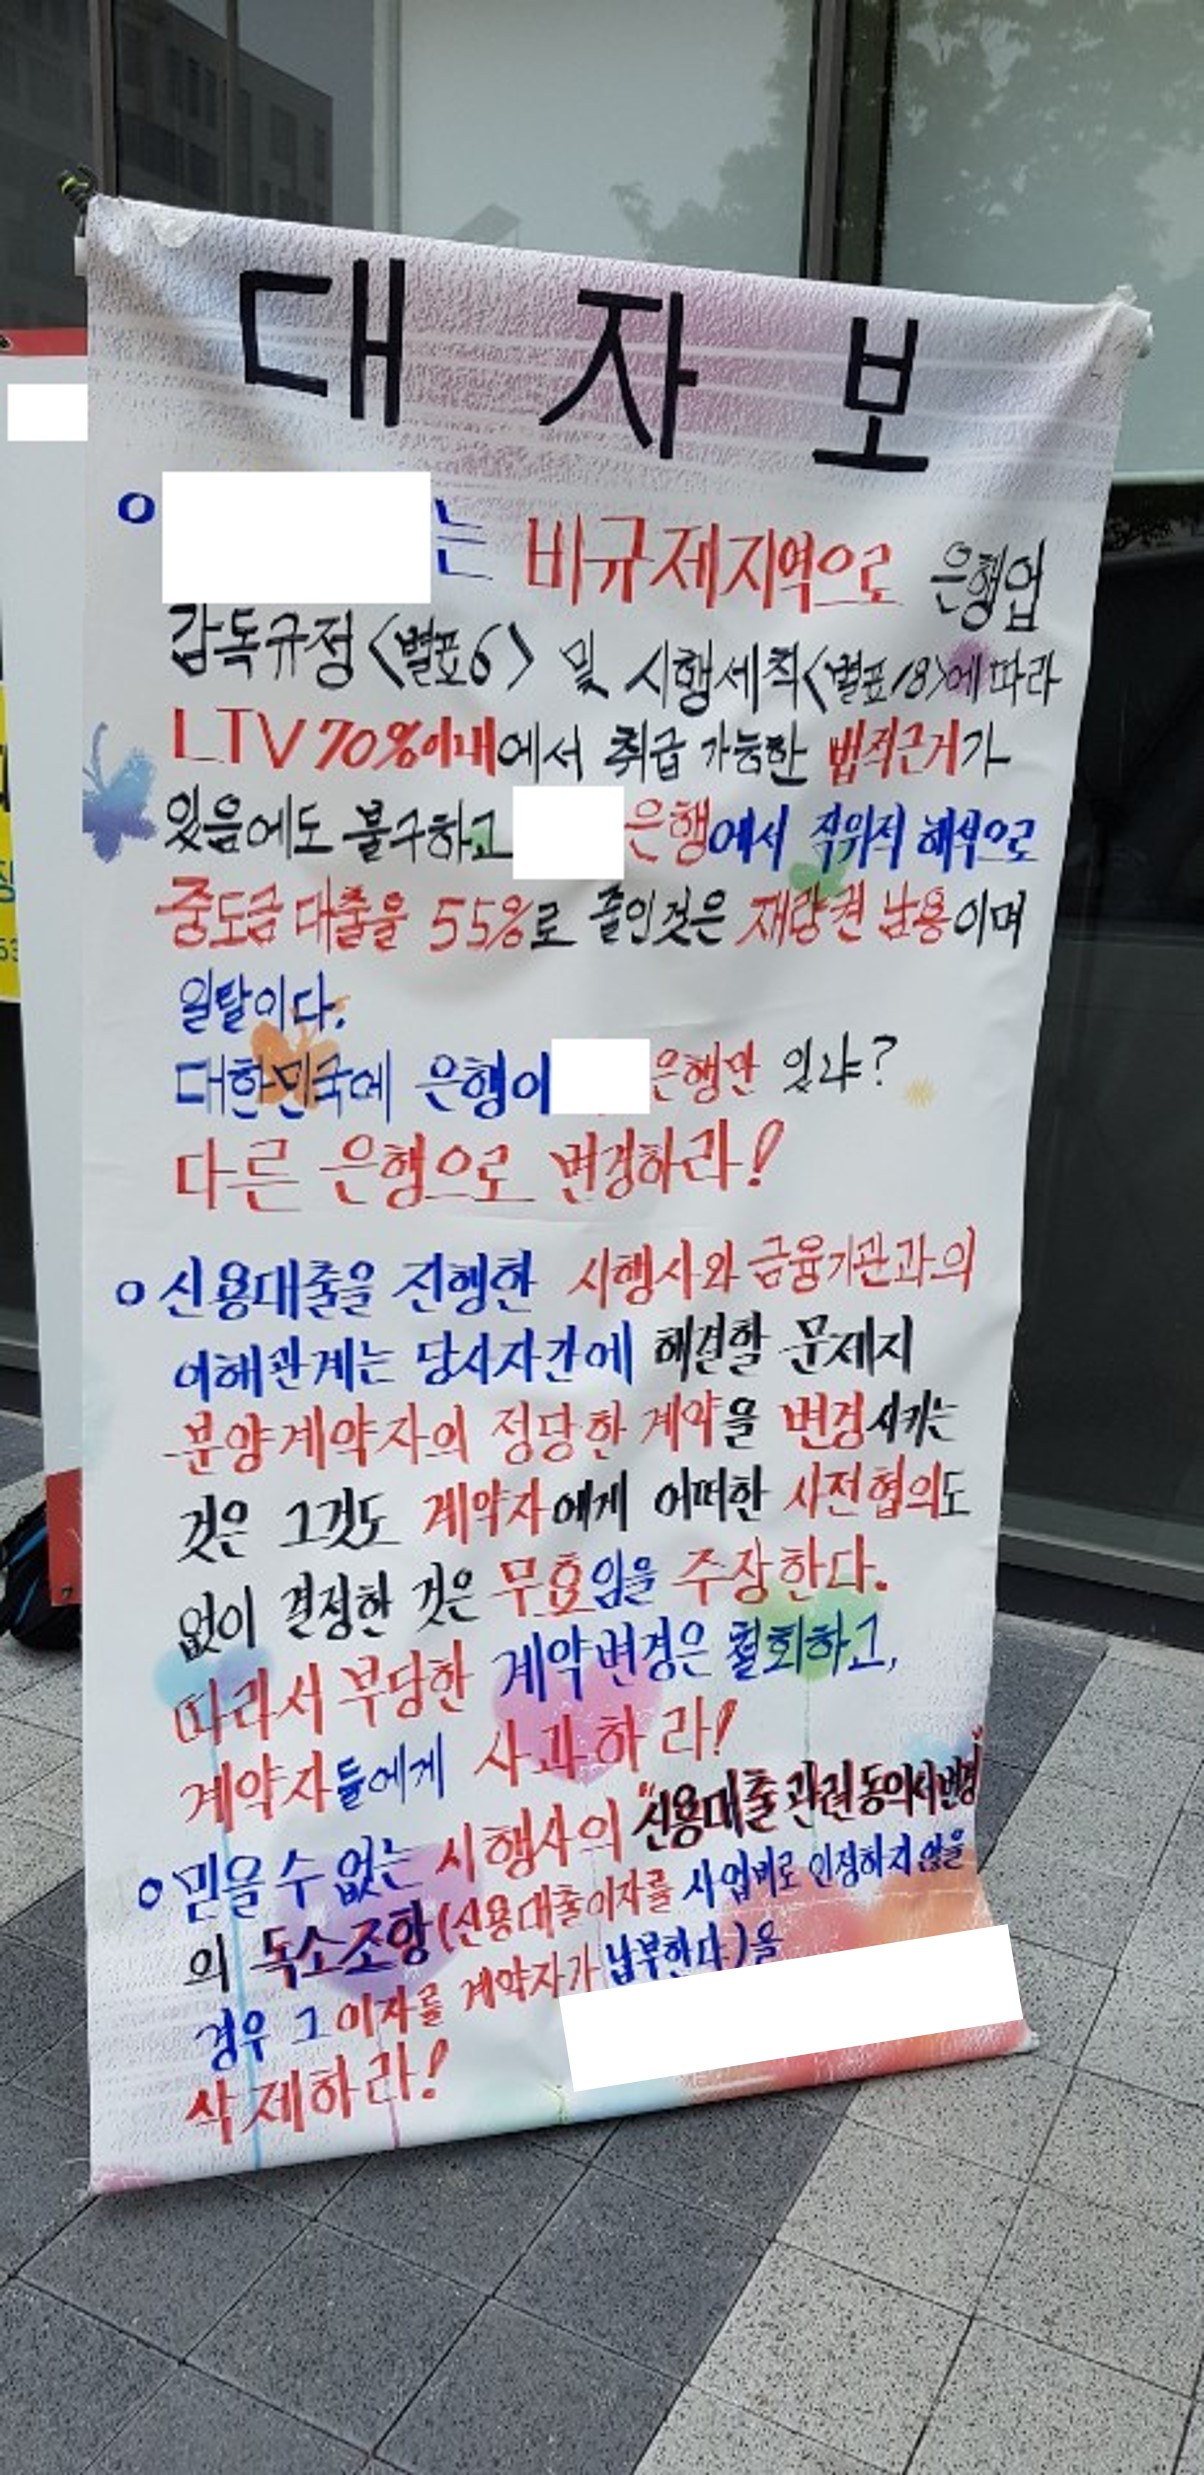 대 자 보
o 는 비규제지역으로 은행업
감독규정<별표6> 및 시행세칙<별표18>에 따라
LTV 70%이내에서 취급 가능한 법적근거가
있음에도 불구하고 은행에서 작위적 해석으로
중도금 대출을 55%로 줄인것은 재량권 남용이며
일탈이다.
대한민국에 은행이 은행만 있냐?
다른 은행으로 변경하라!
o 신용대출을 진행한 시행사와 금융기관과의
이해관계는 당사자간에 해결할 문제지
분양계약자의 정당한 계약을 변경시키는
것은 그것도 계약자에게 어떠한 사전협의도
없이 결정한 것은 무효임을 주장한다.
따라서 부당한 계약변경은 철회하고,
계약자들에게 사과하라!
o 믿을 수 없는 시행사의 "신용대출관련동의서변경"
의 독소조항(신용대출이자를 사업비로 인정하지 않을
경우 그 이자를 계약자가 납부한다.)을
삭제하라!
53